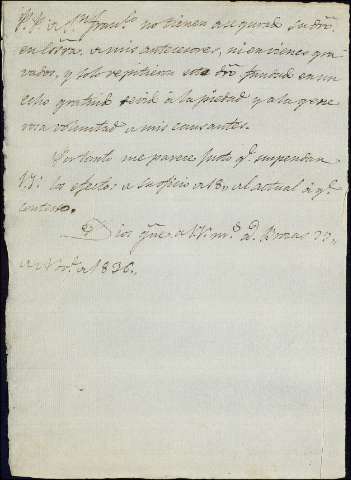 P. P. de Sn. Franco. no tienen asegurado su dro.
en tierras de mis antecesores, ni en vienes gra-
vados, y solo repitieron este dro. fundado en un
echo gratuito devido á la piedad y a la gene-
rosa voluntad de mis causantes.
Por tanto me parece justo qe. suspendan
VV. los efectos de su oficio de 18,, del actual á qe.
contesto.
Dios gue. a VV. ms. as.
de 1836.